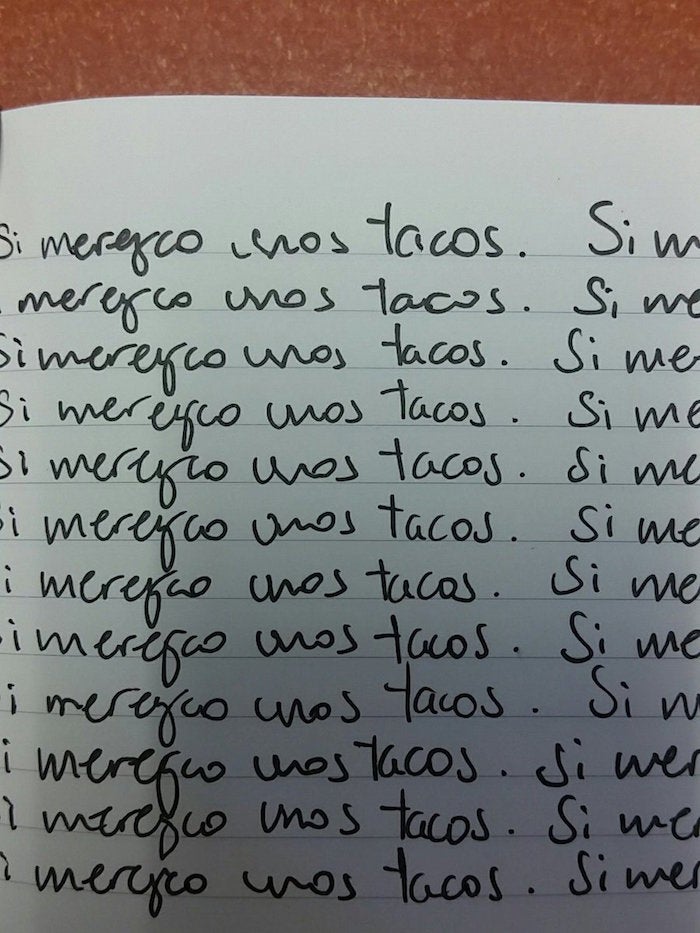 Si merezco unos tacos. Si m
i merezco unos tacos. Si me
Si merezco unos tacos. Si me
Si merezco unos tacos. Si me
Si merezco unos tacos. Si me
Si merezco unos tacos. Si me
i merezco unos tacos. Si me
Si merezco unos tacos. Si me
i merezco unos tacos. Si m
i merezco unos tacos. Si mer
i merezco unos tacos. Si mer
i merezco unos tacos. Si mer